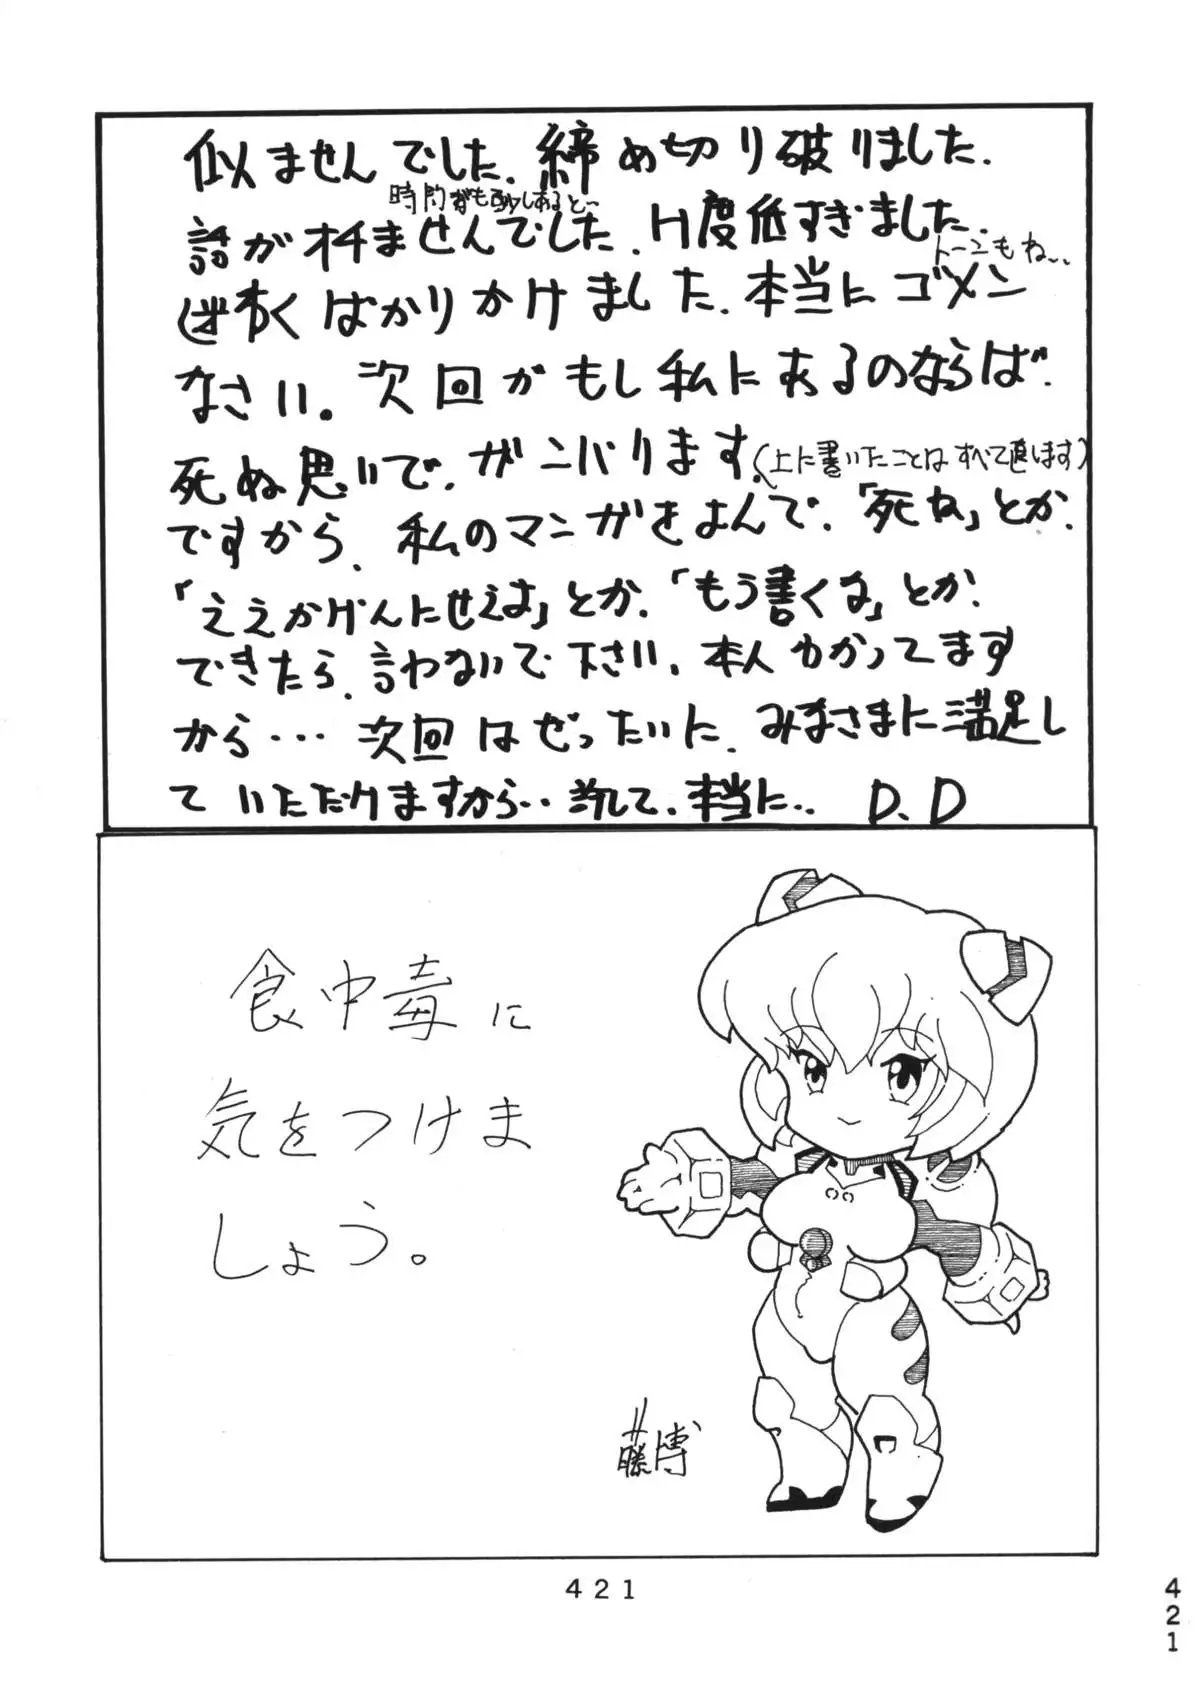 似ませんでした。締め切り破りました。
時間がもう少しあると〜
話がオチませんでした。H度低すぎました。
トーンもね..
迷惑ばかりかけました。本当にゴメン
なさい。次回がもし私にあるのならば、
死ぬ思いで、ガンバリます。(上に書いたことはすべて直します)
ですから、私のマンガをよんで、「死ね」とか、
「ええかげんにせえよ」とか、「もう書くな」とか、
できたら、言わないで下さい。本人わかってます
から… 次回はぜったいに、みなさまに満足し
ていただけますから‥ 本当に‥ D.D
食中毒に
気をつけま
しょう。
藤博
421
421